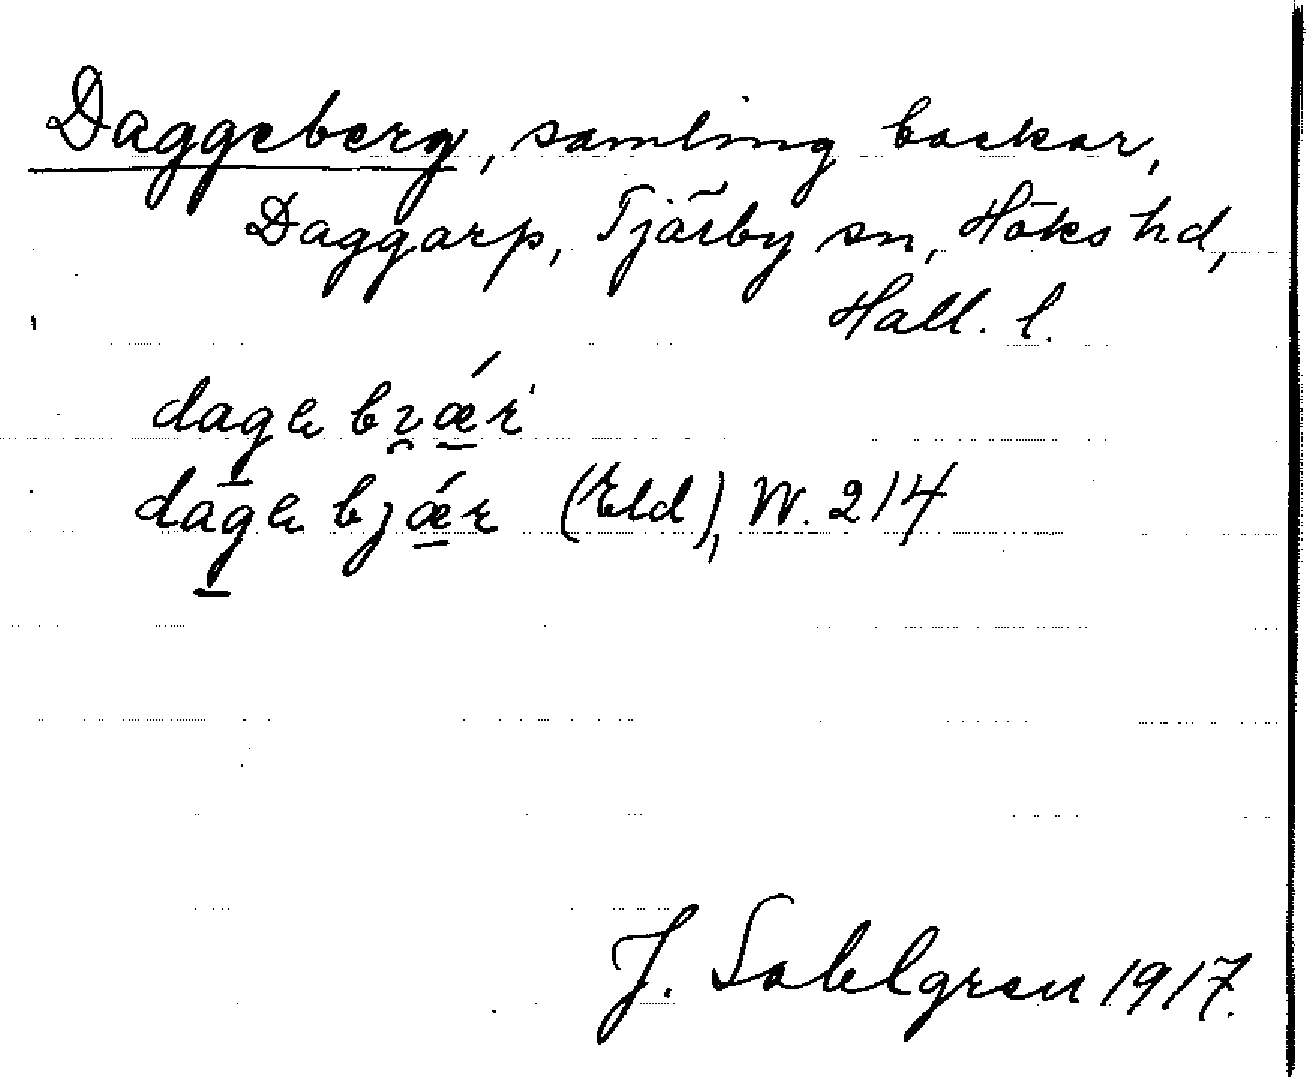 Daggeberg, samling backar,
Daggarp, Tjärby sn, Höks hd,
Hall. l.
dagɐ bɿǽr
dagɐ bjǽr (Eld), W. 214
J. Sahlgren 1917.